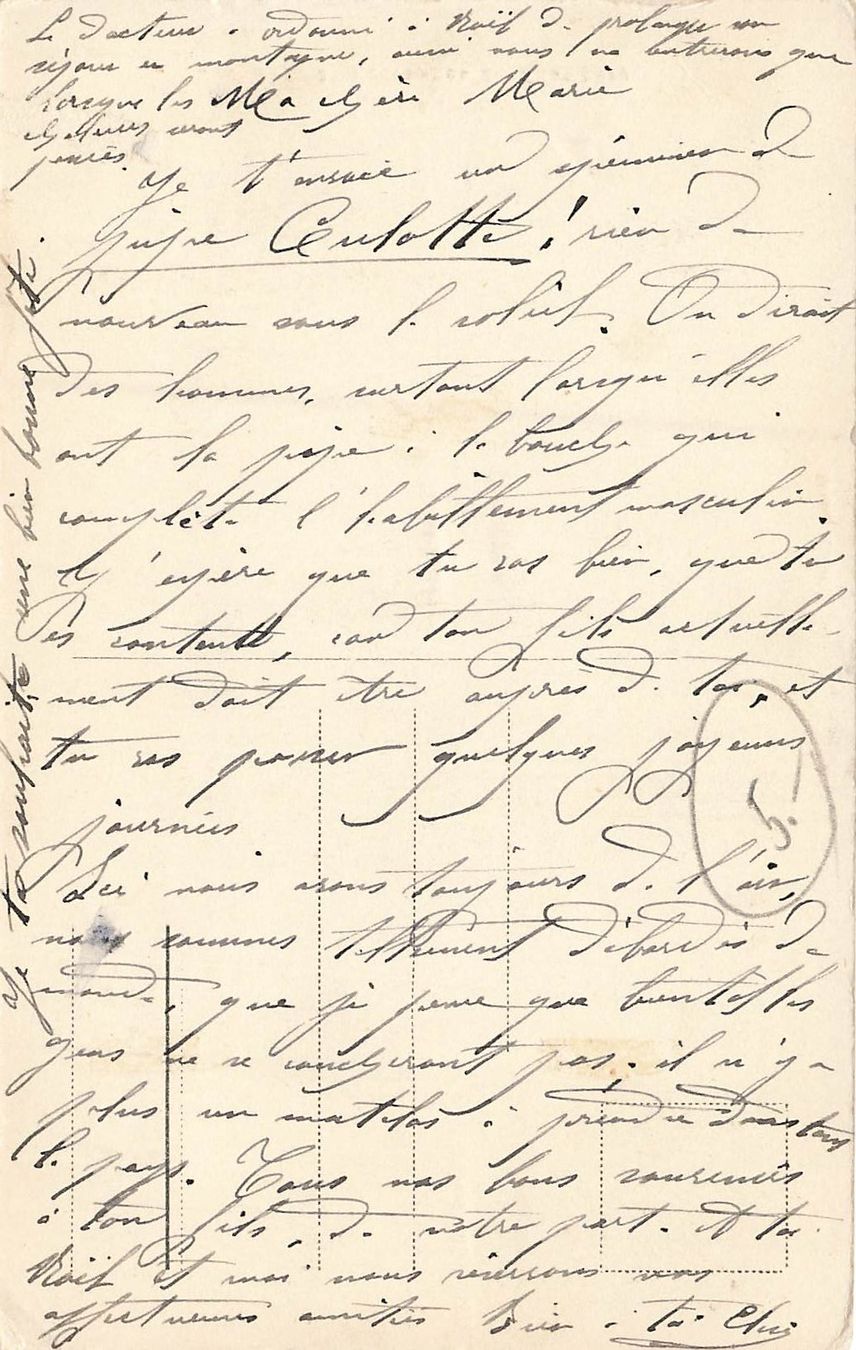 Le docteur a ordonné à Noël de prolonger son
séjour en montagne, aussi nous ne rentrerons que
lorsque les
chaleurs seront
passées
Ma chère Marie
Je t'envoie un spécimen de
jupe Culotte! rien de
nouveau sous le soleil. On dirait
des hommes, surtout lorsqu'elles
ont la pipe à la bouche qui
complète l'habillement masculin.
J'espère que tu vas bien, que tu
es contente, car ton fils actuelle-
ment doit être auprès de toi, et
tu vas passer quelques joyeuses
journées
Ici nous avons toujours de l'air,
nous sommes tellement débordés de
monde, que je pense que bientôt les
gens ne se coucheront pas. il n'y a
plus un matelas à prendre dans tout
le pays. Tous nos bons souvenirs
à ton fils, de notre part. A toi
Noël et moi nous réservons nos
affectueuses amitiés Bien à toi
Je te souhaite une bien bonne fête.
5!